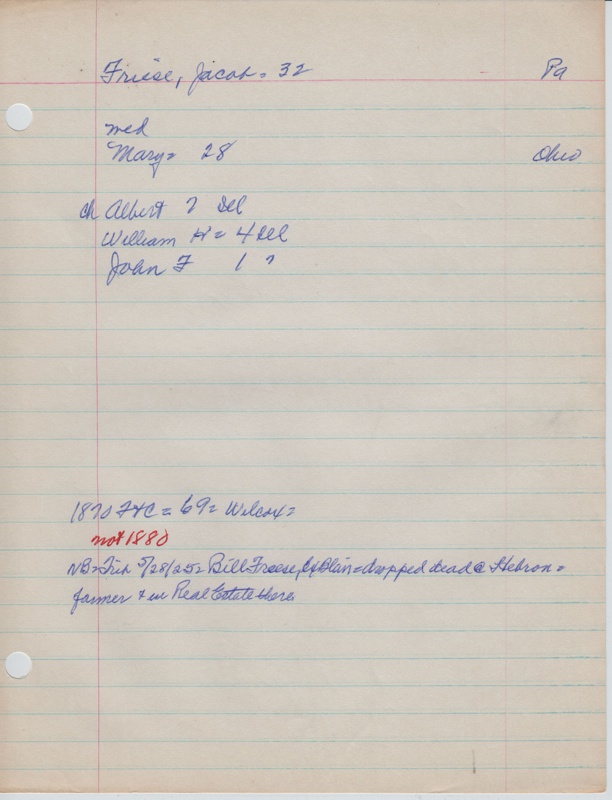 Friese, Jacob = 32 Pa
med
Mary = 28 Ohio
ch Albert 7 Ill
William H = 4 Ill
John F 1 ?
1870 F & C = 69 = Wilcox =
not 1880
NB = Trib 5/28/25 = Bill Freese, = dropped dead @ Hebron =
farmer & in Real Estate there